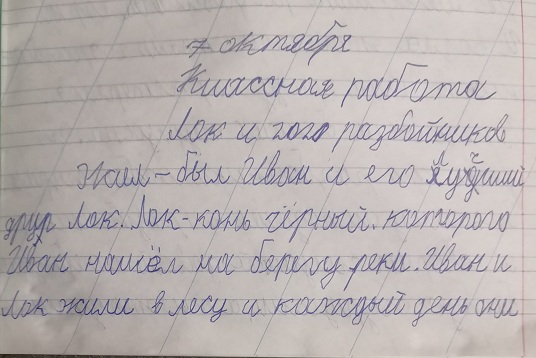 7 октября
Классная работа
Лок и 2020 разбойников
Жил-был Иван и его лучший
друг Лок. Лок-конь чёрный. которого
Иван нашёл на берегу реки. Иван и
Лок жили в лесу и каждый день они